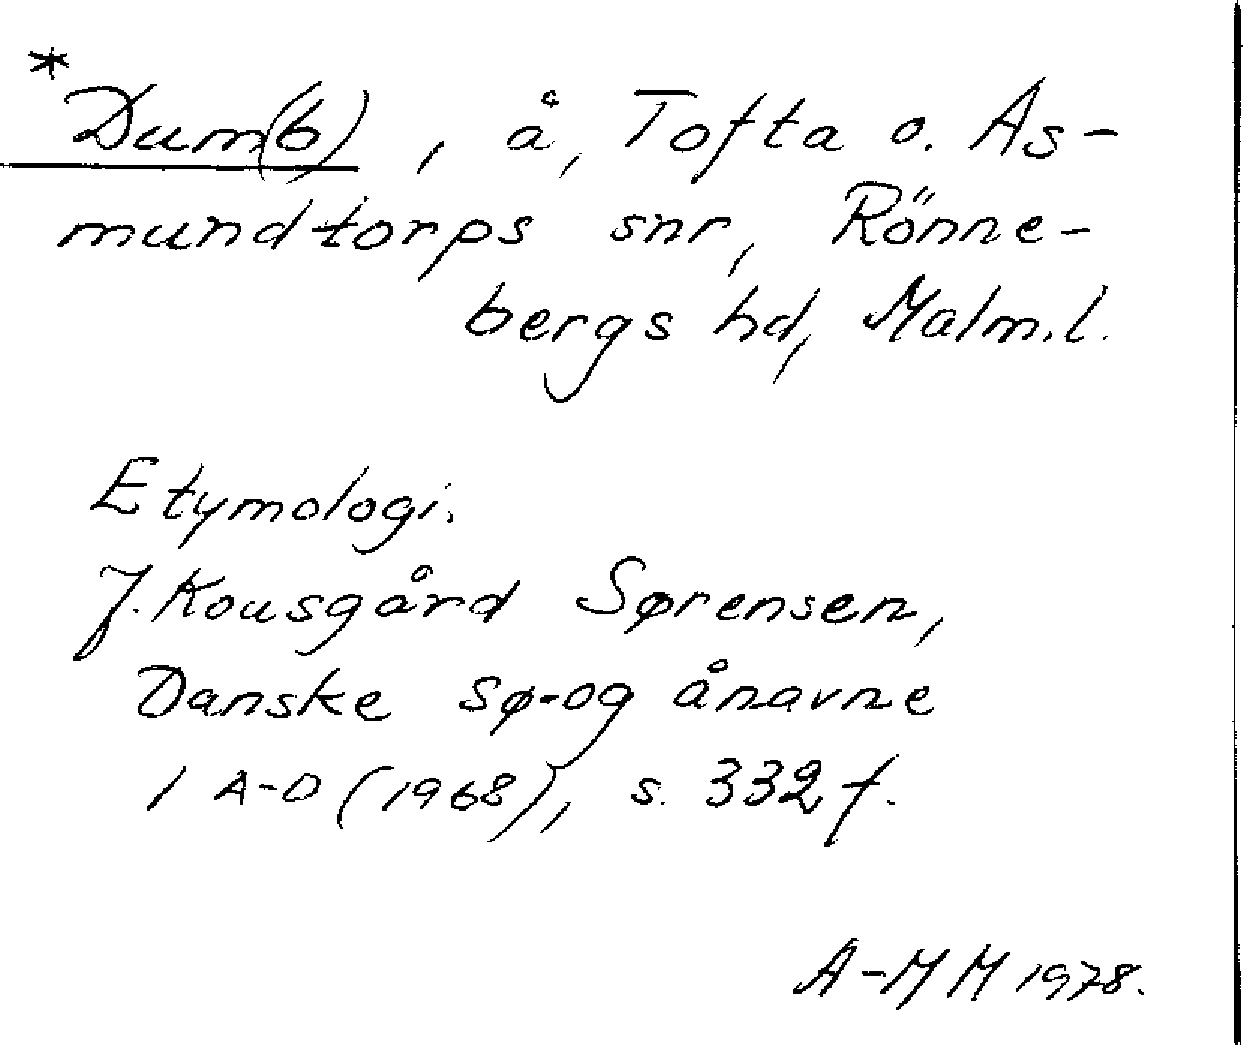 *Dum(b), å, Tofta o. As-
mundtorps snr, Rönne-
bergs hd, Malm.l.
Etymologi.
J. Kousgård Sørensen,
Danske sø- og ånavne
1 A-D (1968), s. 332 f.
A-MM 1978.